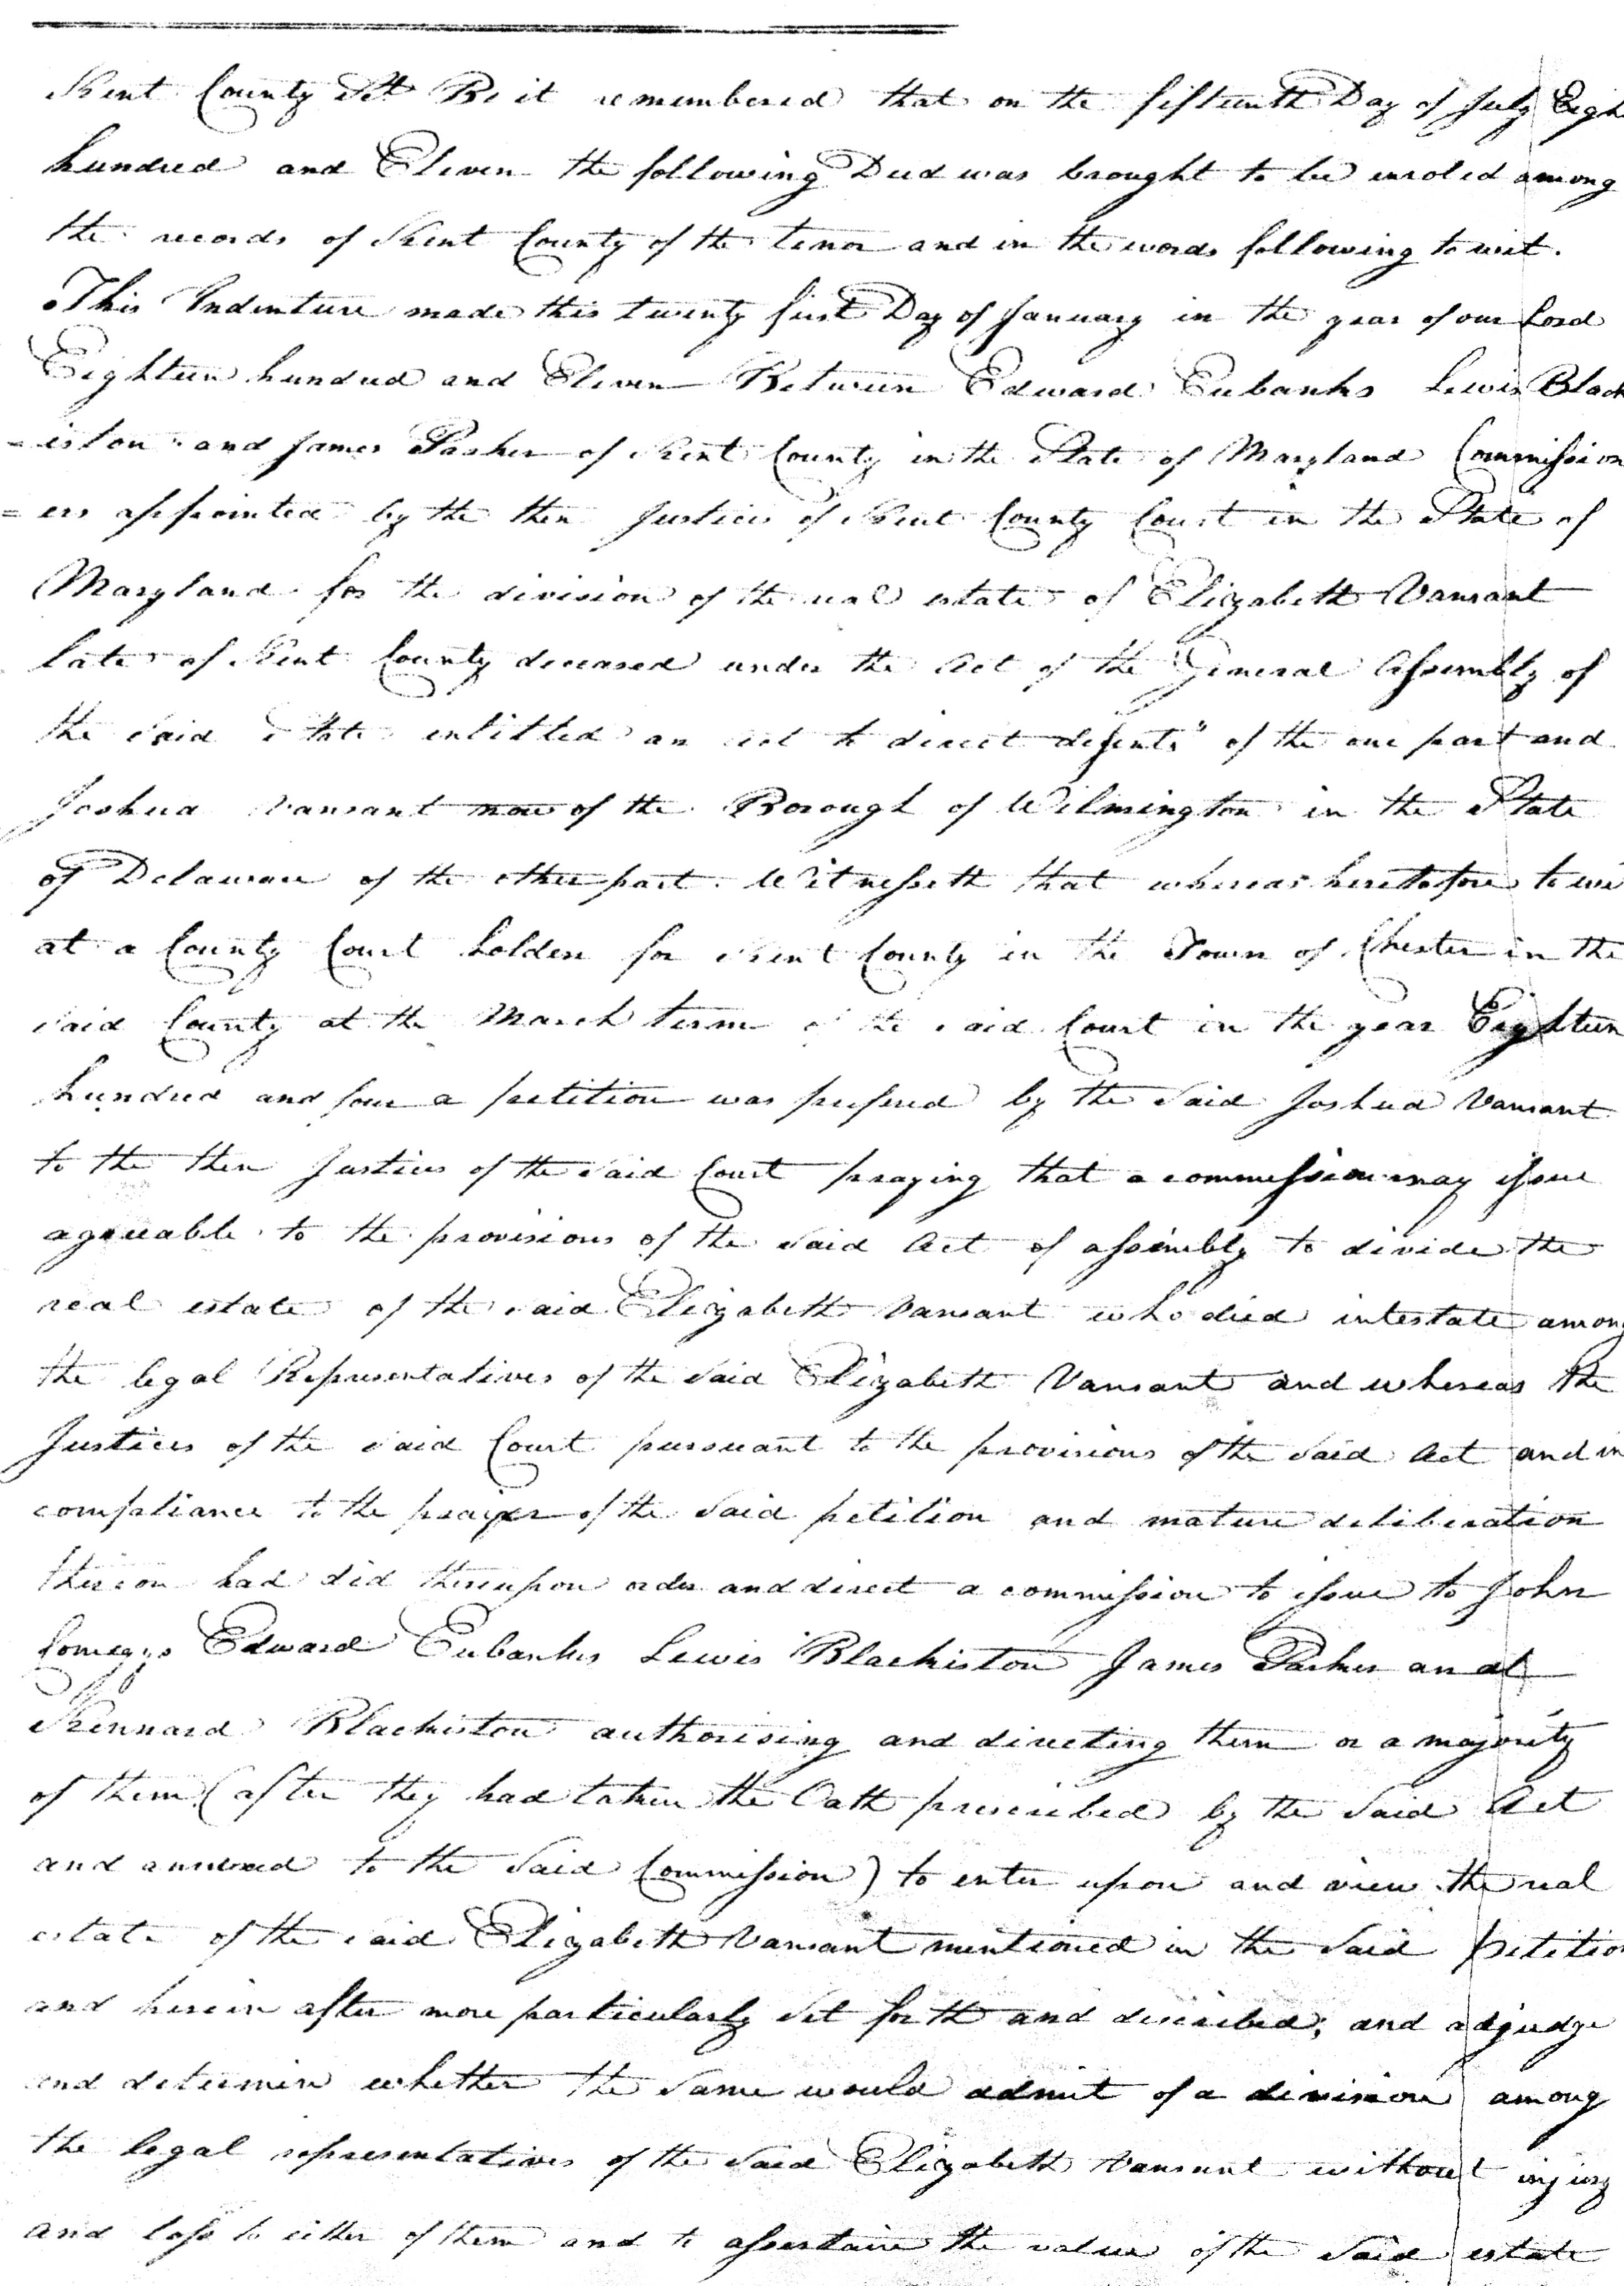 Kent County Sct Be it remembered that on the fifteenth Day of July Eigh
hundred and Eleven the following Deed was brought to be enroled among
the records of Kent County of the tenor and in the words following to wit.
This Indenture made this twenty first Day of January in the year of our Lord
Eighteen hundred and Eleven Between Edward Eubanks Lewis Black
=iston and James Parker of Kent County in the State of Maryland Commission
=ers appointed by the then Justices of Kent County Court in the State of
Maryland for the division of the real estate of Elizabeth Vansant
late of Kent County deceased under the Act of the General Assembly of
the said State entitled an act to direct desents" of the one part and
Joshua Vansant now of the Borough of Wilmington in the State
of Delaware of the other part. Witnesseth that whereas heretofore to wi
at a County Court holden for Kent County in the Town of Chester in the
said County at the March term of the said Court in the year Eighteen
hundred and four a petition was prefered by the said Joshua Vansant
to the then Justices of the said Court praying that a commission may issue
agreeable to the provisions of the said Act of assembly to divide the
real estate of the said Elizabeth Vansant who died intestate among
the legal Representatives of the said Elizabeth Vansant and whereas the
Justices of the said Court pursuant to the provisions of the said Act and in
compliance to the prayer of the said petition and mature deliberation
thereon had did thereupon order and direct a commission to issue to John
Comegys Edward Eubanks Lewis Blackiston James Parker and
Kennard Blackiston authorising and directing them or a majority
of them (after they had taken the Oath prescribed by the said Act
and annexed to the said Commission) to enter upon and view the real
estate of the said Elizabeth Vansant mentioned in the said petition
and herein after more particularly set forth and described; and adjudge
and determin whether the same would admit of a division among
the legal representatives of the said Elizabeth Vansant without injury
and loss to either of them and to assertain the value of the said estate